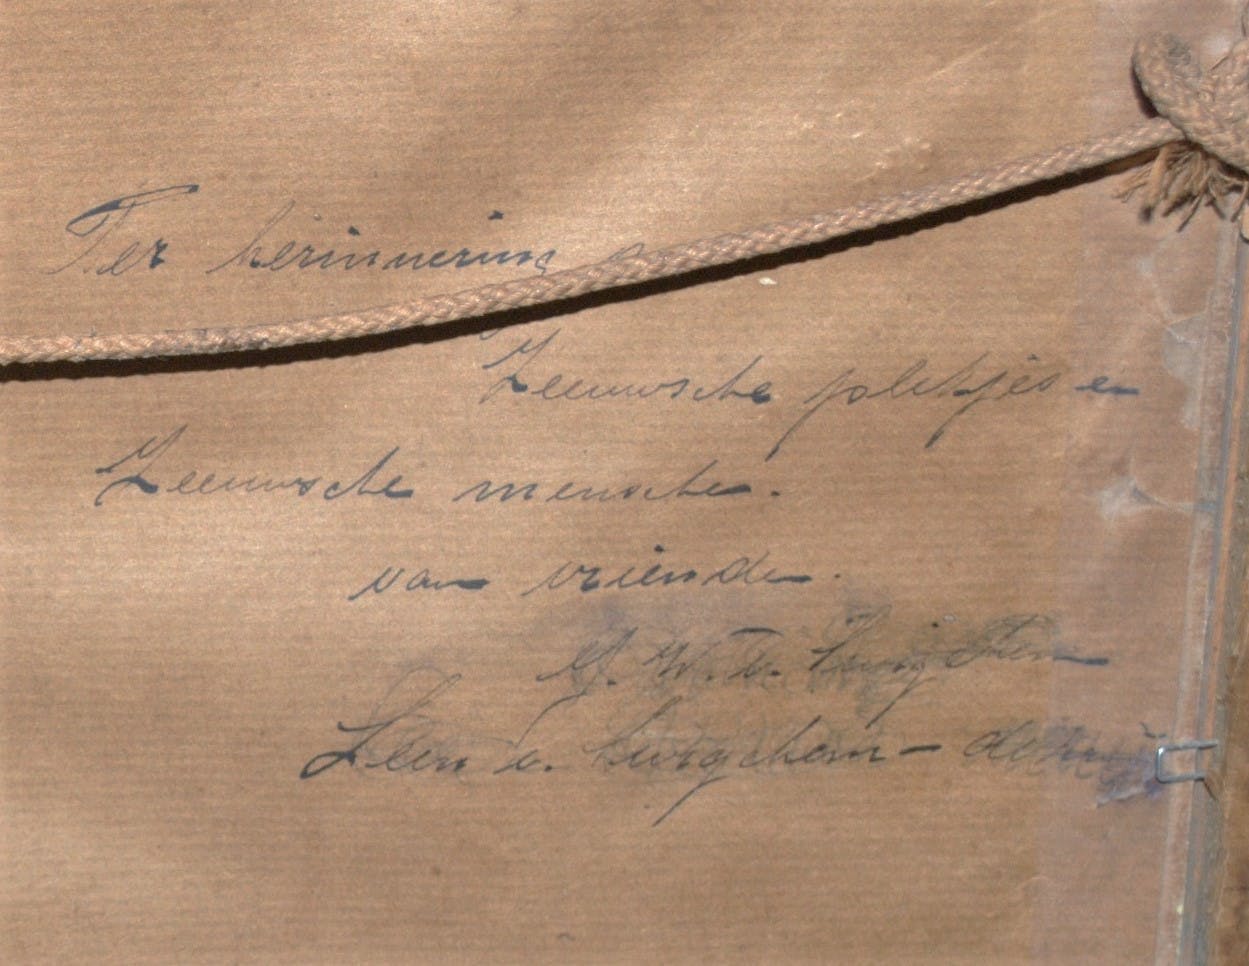 Ter herinnering
Zeeuwsche plekjes en
Zeeuwsche mensche.
van vriende.
W. v.
Leen v. Swigchem - de